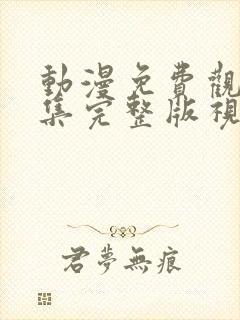 動漫免費觀
集完整版視
君夢無痕